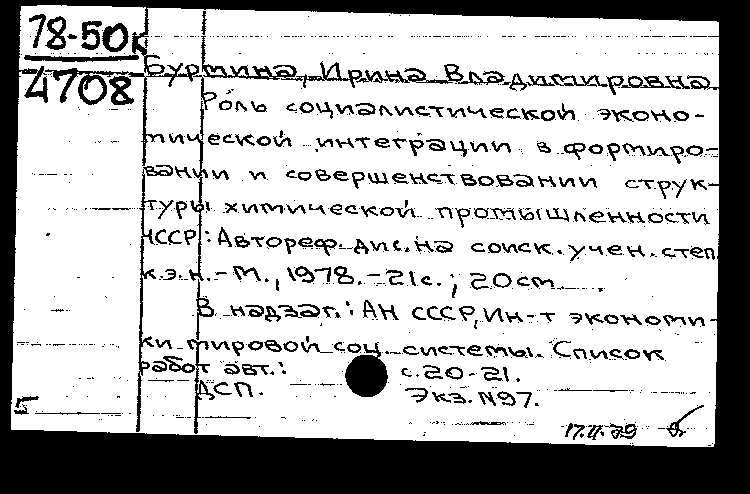 78-50к
4708
Буртина, Ирина Владимировна
Роль социалистической эконо-
мической интеграции в формиро-
вании и совершенствовании струк-
туры химической промышленности
ЧССР: Автореф. дис. на соиск. учен. степ.
к.э.н. - М., 1978. - 21с.; 20см.
В надзаг.: АН СССР, Ин-т экономи-
ки мировой соц. системы. Список
работ авт.: с.20-21.
ДСП. Экз. N97.
Б